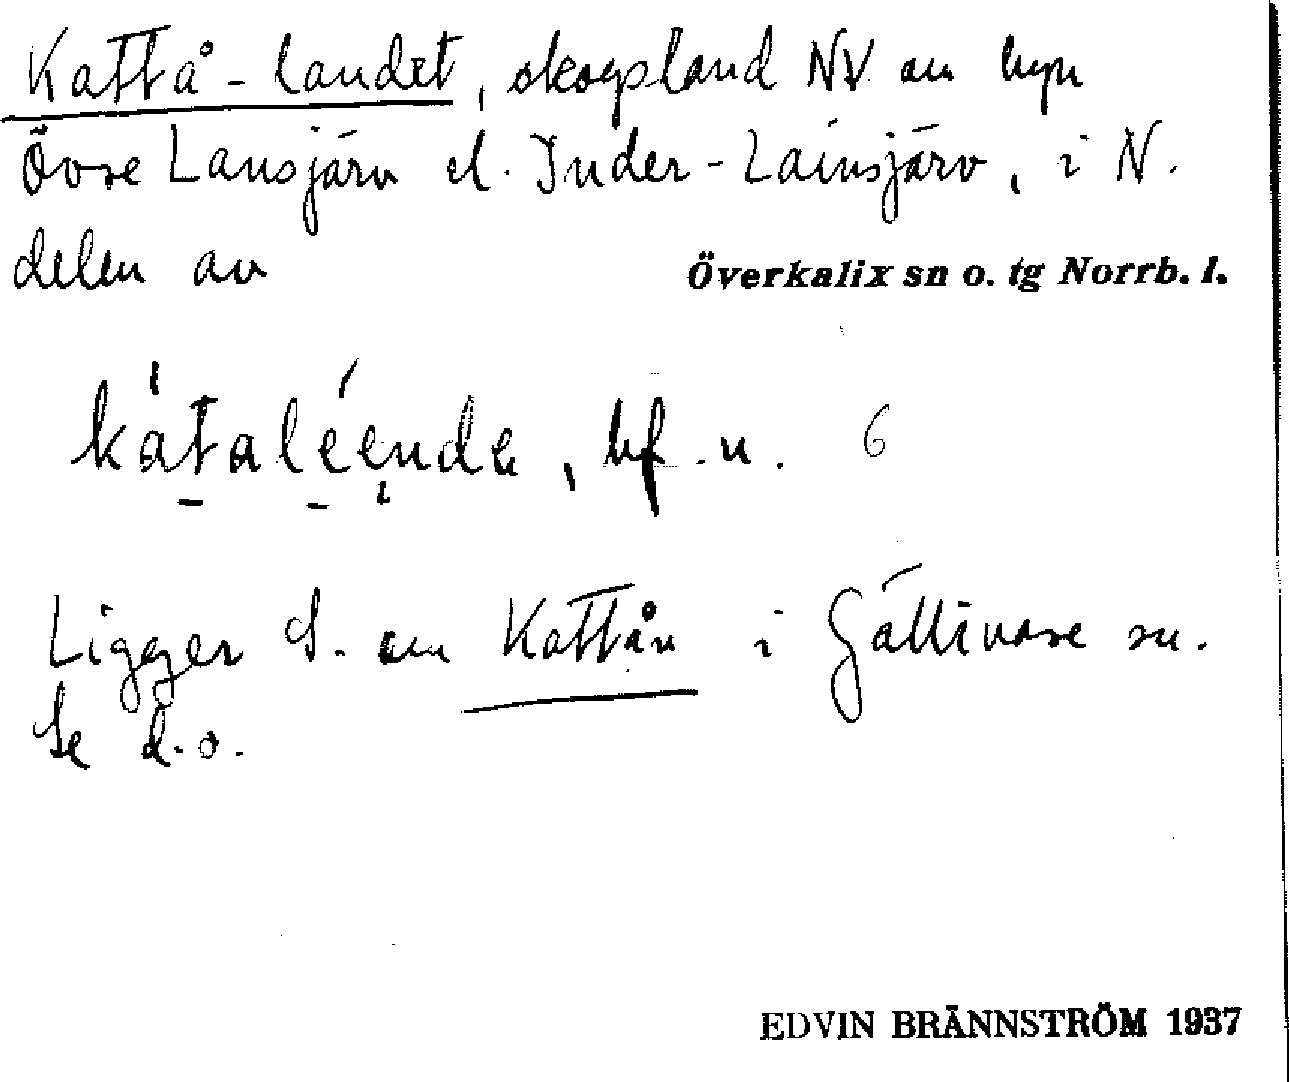 Kattå-landet, skogsland NV om byn
Övre Lansjärv el. Inder-Lainsjärv, i N.
delen av Överkalix sn o. tg Norrb. l.
kátaléendε, bf. n. 6
Ligger S. om Kattån i Gällivare sn.
Se d. o.
EDVIN BRÄNNSTRÖM 1937